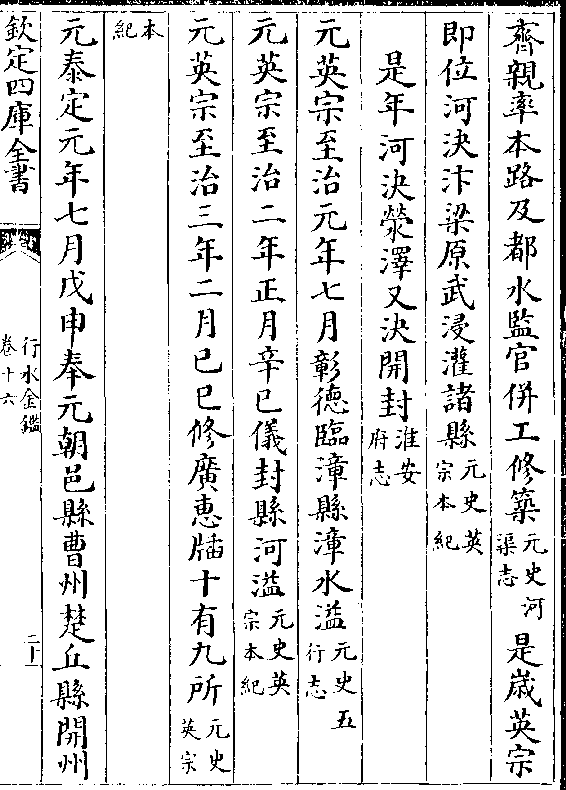 齊親率本路及都水監官併工修築元史河渠志是嵗英宗
即位河決汴梁原武浸灌諸縣元史英宗本紀
是年河決滎澤又決開封淮安府志
元英宗至治元年七月彰德臨漳縣漳水溢元史五行志
元英宗至治二年正月辛巳儀封縣河溢元史英宗本紀
元英宗至治三年二月己巳修廣惠牐十有九所元史英宗
本紀
元泰定元年七月戊申奉元朝邑縣曹州楚丘縣開州
欽定四庫全書
行水金鑑
卷十六
二十